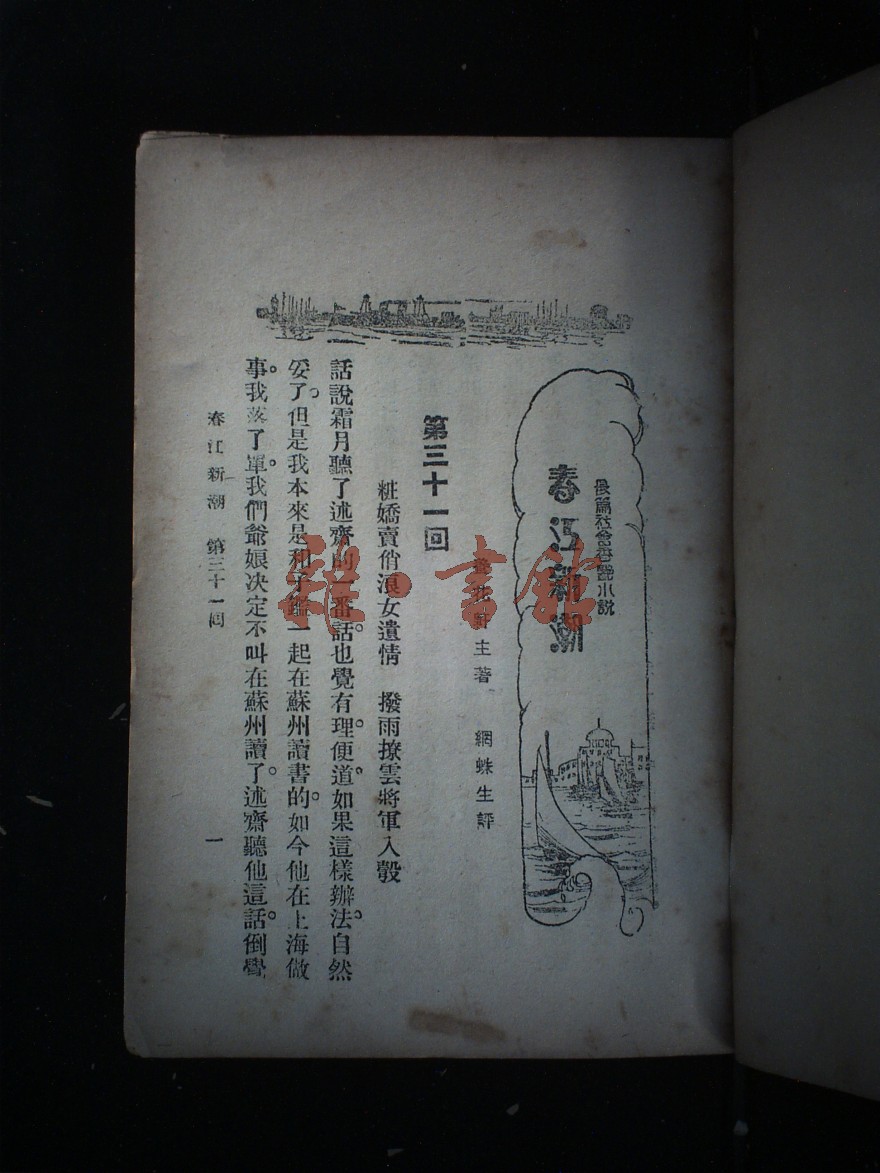 長篇社會香艷小説
春江新潮
主著 網蛛生評
第三十一回
粧嬌賣俏浪女遺情 撥雨撩雲將軍入彀
話說霜月聽了述齋的一番話。也覺有理。便道。如果這樣辦法。自然
妥了。但是我本來是和子鑑一起在蘇州讀書的。如今他在上海做
事。我落了單。我們爺娘決定不叫在蘇州讀了。述齋聽他這話。倒覺
春江新潮 第三十一回 一
雅·書館